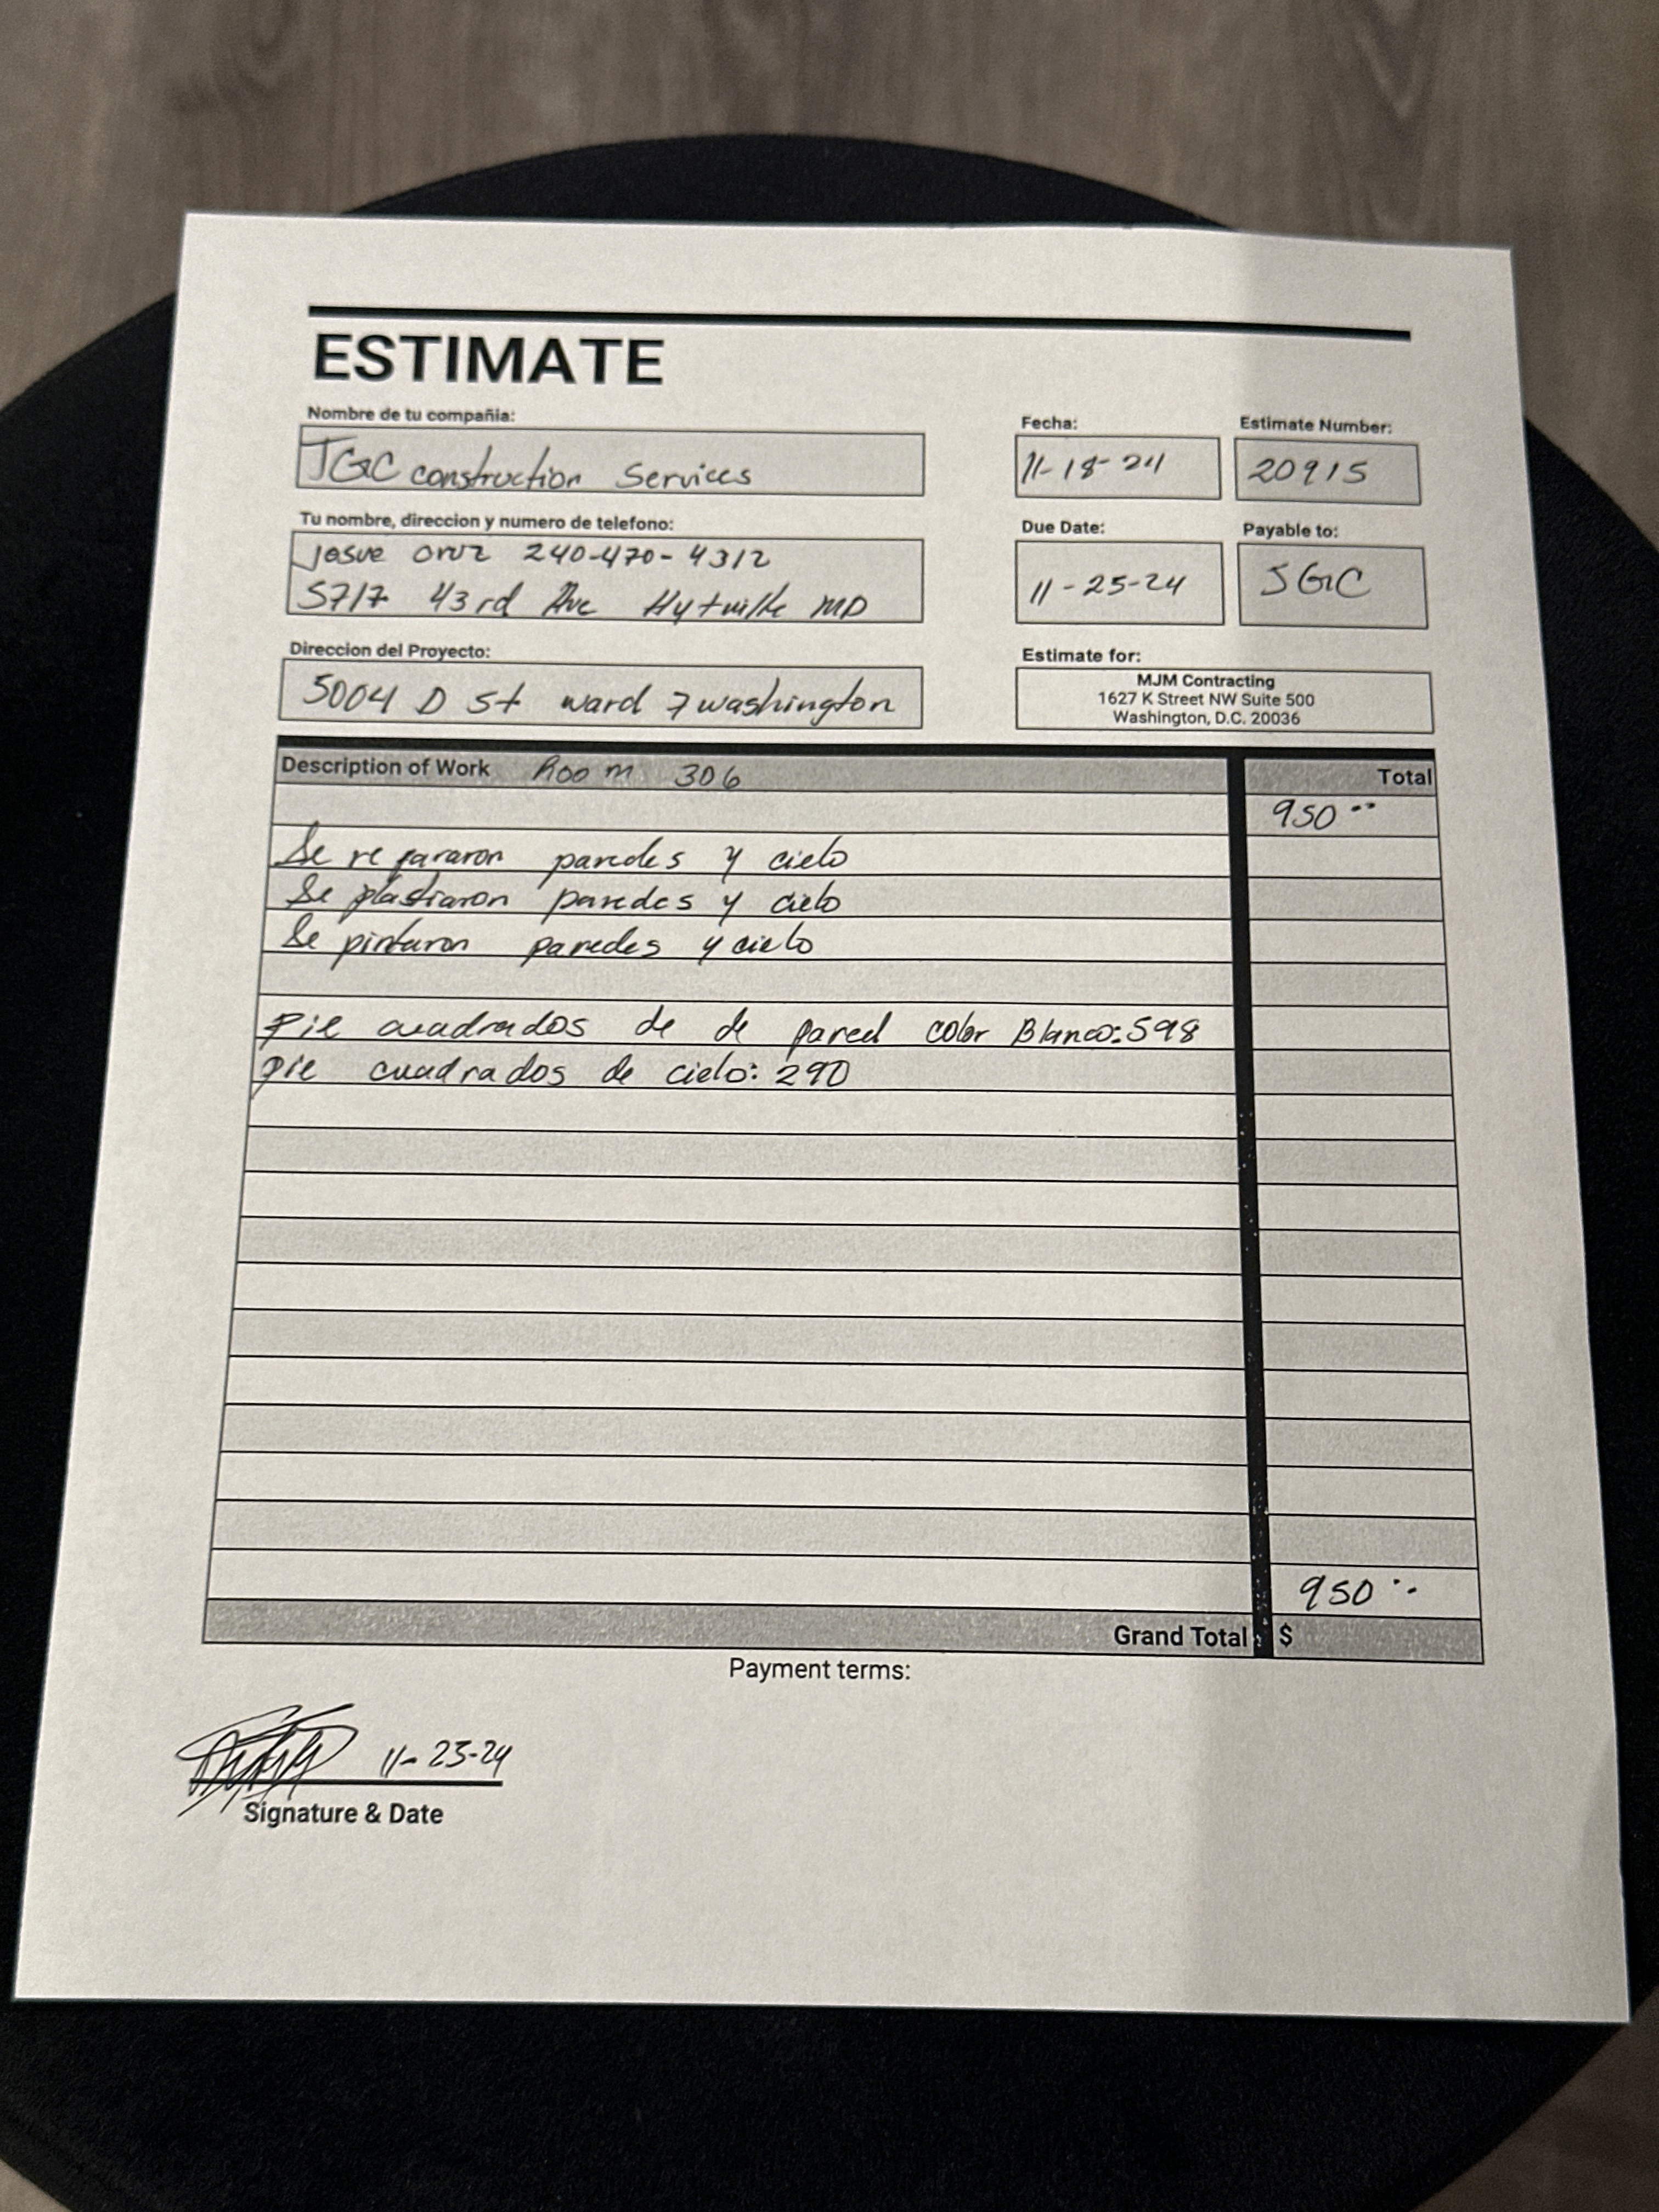 ESTIMATE
Nombre de tu compañia:
JGC construction Services
Fecha:
11-18-24
Estimate Number:
20915
Tu nombre, direccion y numero de telefono:
josue cruz 240-470-4312
5717 43rd Ave Hytville MD
Due Date:
11-25-24
Payable to:
JGC
Direccion del Proyecto:
5004 D St ward 7 washington
Estimate for:
MJM Contracting
1627 K Street NW Suite 500
Washington, D.C. 20036
Description of Work Room 306 Total
950 --
Se repararon paredes y cielo
Se plastiaron paredes y cielo
Se pintaron paredes y cielo
pie cuadrados de de pared color Blanco: 598
pie cuadrados de cielo: 290
950 --
Grand Total: $
Payment terms:
11-23-24
Signature & Date